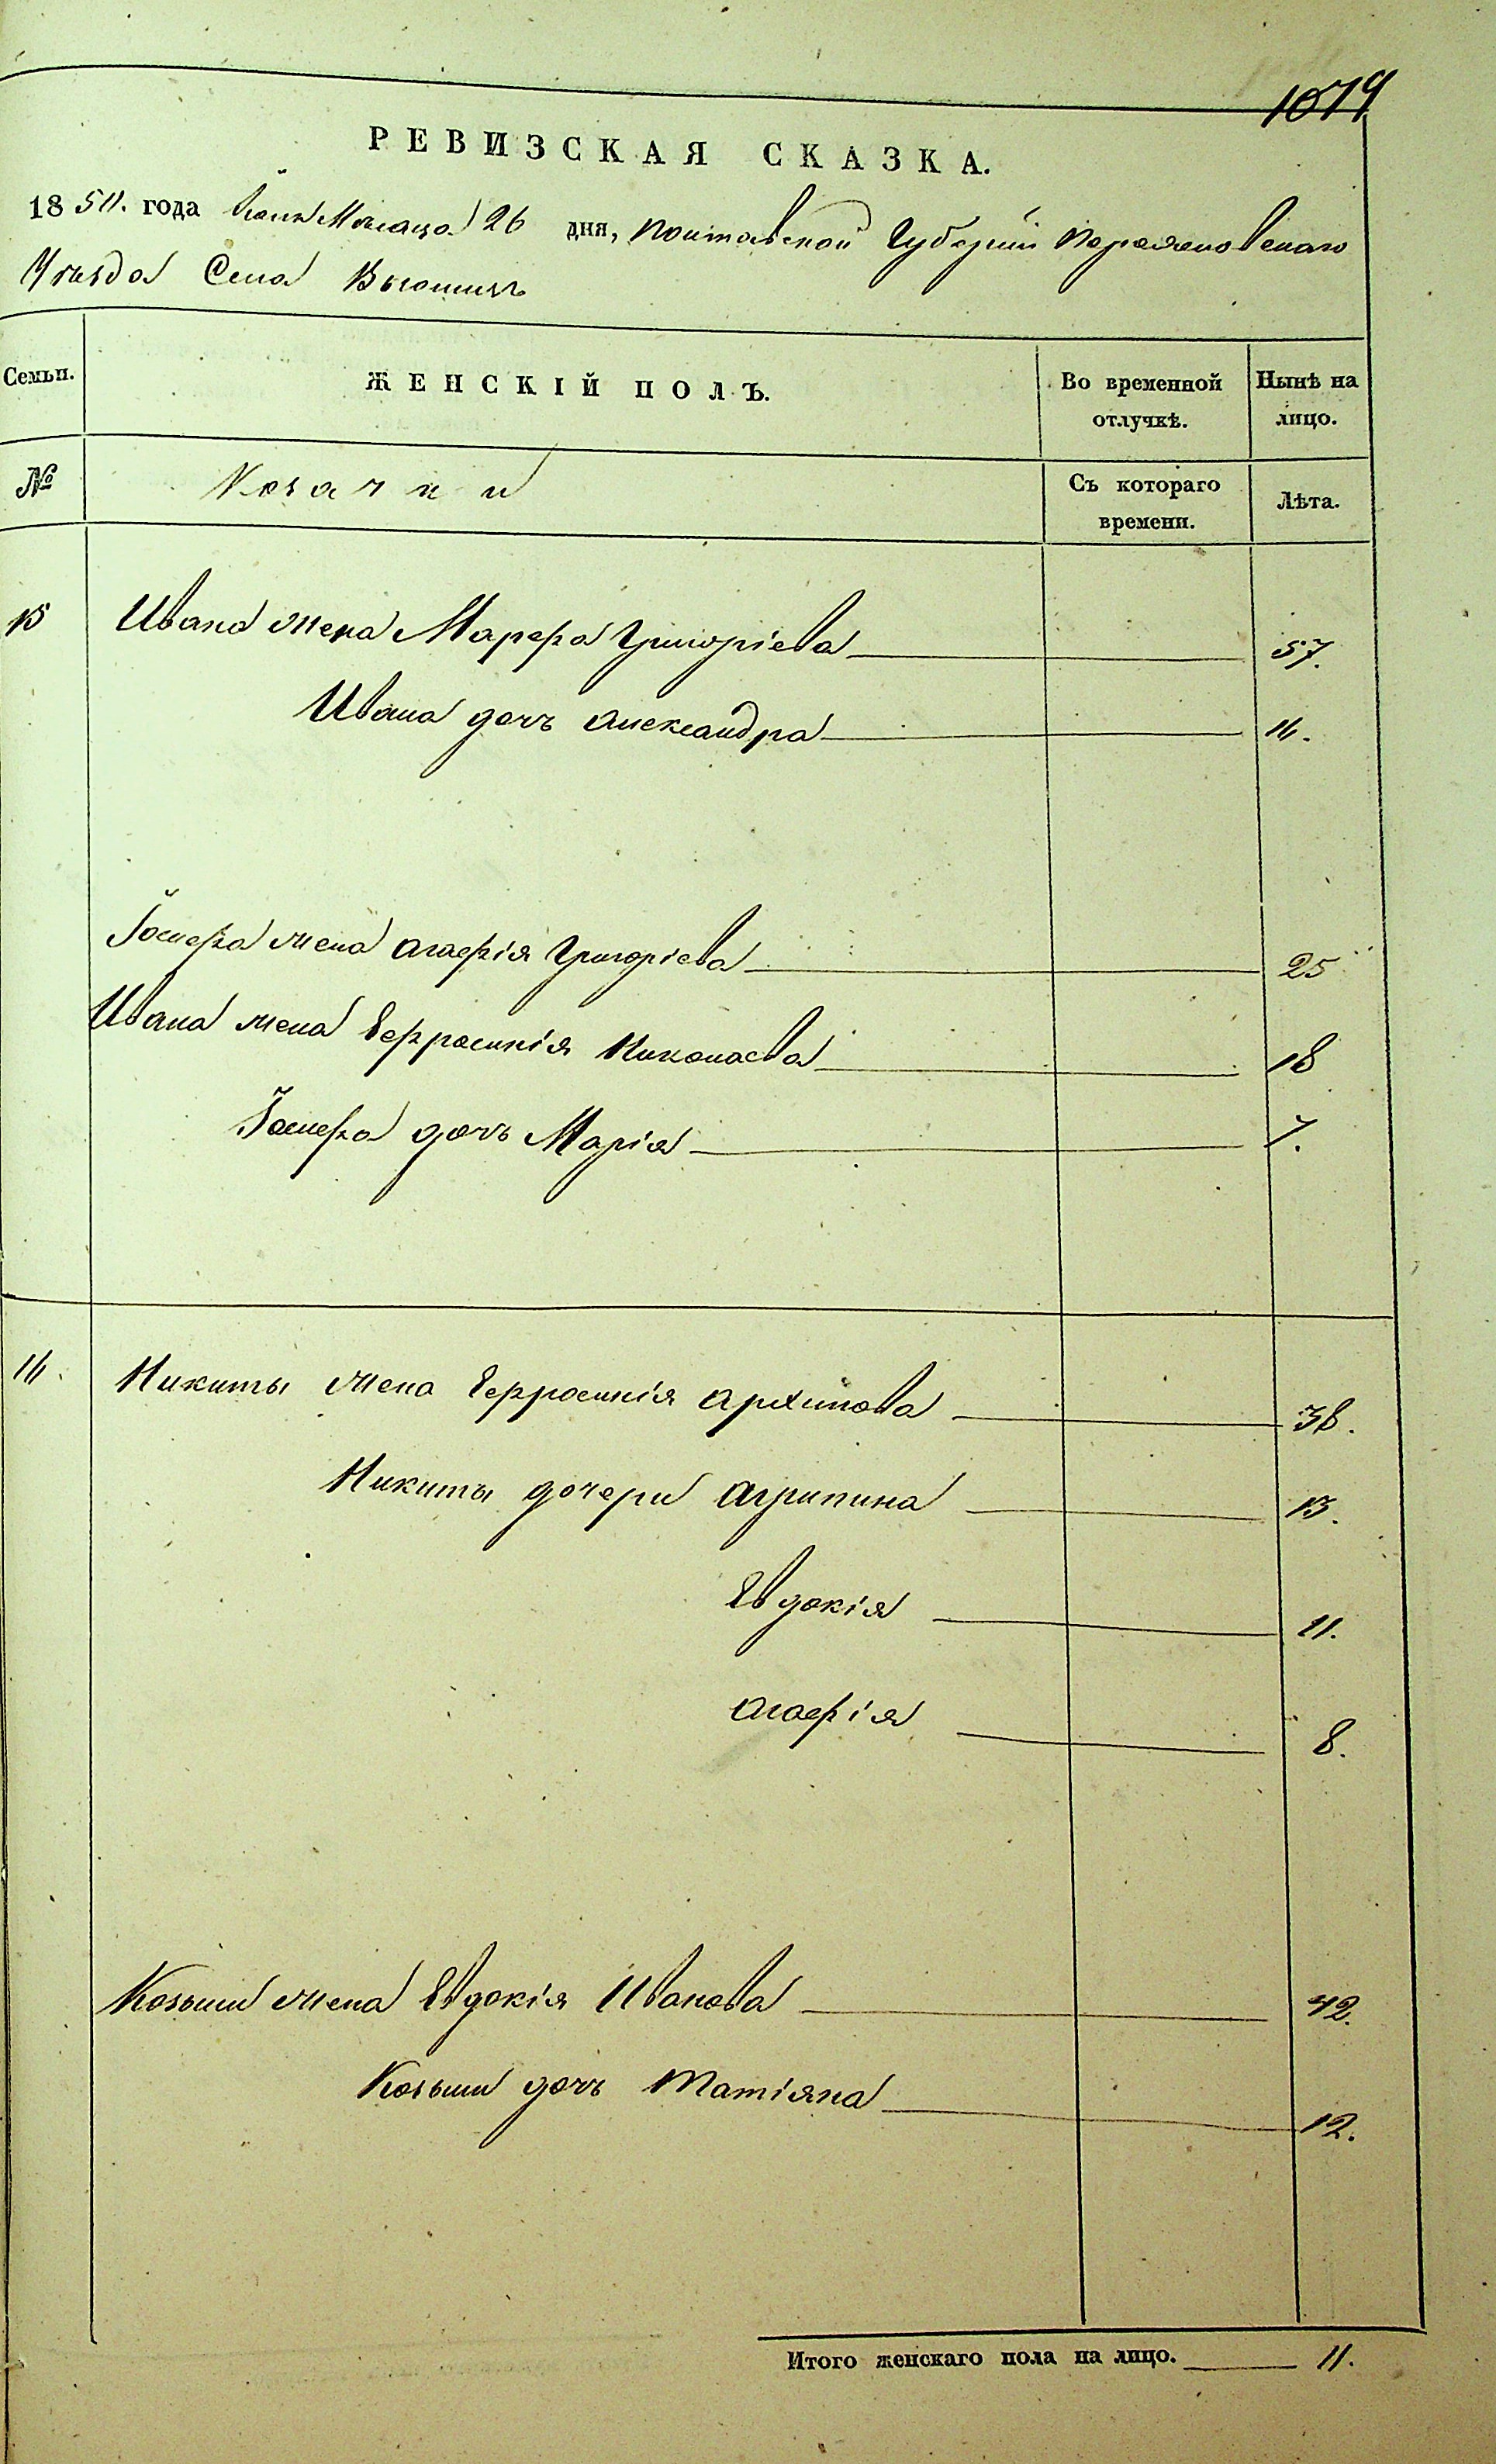 1079
РЕВИЗСКАЯ СКАЗКА.
1850. года Июня Месяца 26 дня, Полтавской Губерніи Переяславскаго
Уѣзда Села
Семьи. ЖЕНСКІЙ ПОЛЪ. Во временной отлучкѣ. Нынѣ на лицо.
№ Козачки Съ котораго времени. Лѣта.
15 Ивана жена Марфа Григоріева 57.
Ивана дочь Александра 16.
Іосифа жена Агафія Григоріева 25
Ивана жена Ефросинія Николаева 18
Іосифа дочь Марія 7.
16. Никиты жена Ефросинія Архипова 38.
Никиты дочери Агрипина 13.
Евдокія 11.
Агафія 8.
Козьми жена Евдокія Иванова 42.
Козьми дочь Татіяна 12.
Итого женскаго пола на лицо. 11.